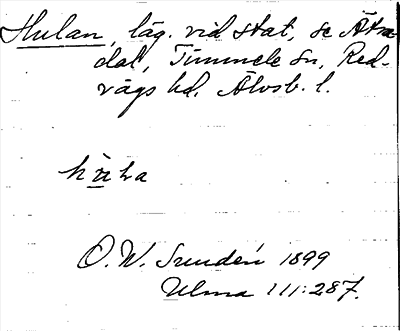 Hulan, läg. vid stat, se Ätra-
dal, Timmele sn, Red-
vägs hd. Älvsb. l.
O. W. Sundén 1899
Ulma 111:287.